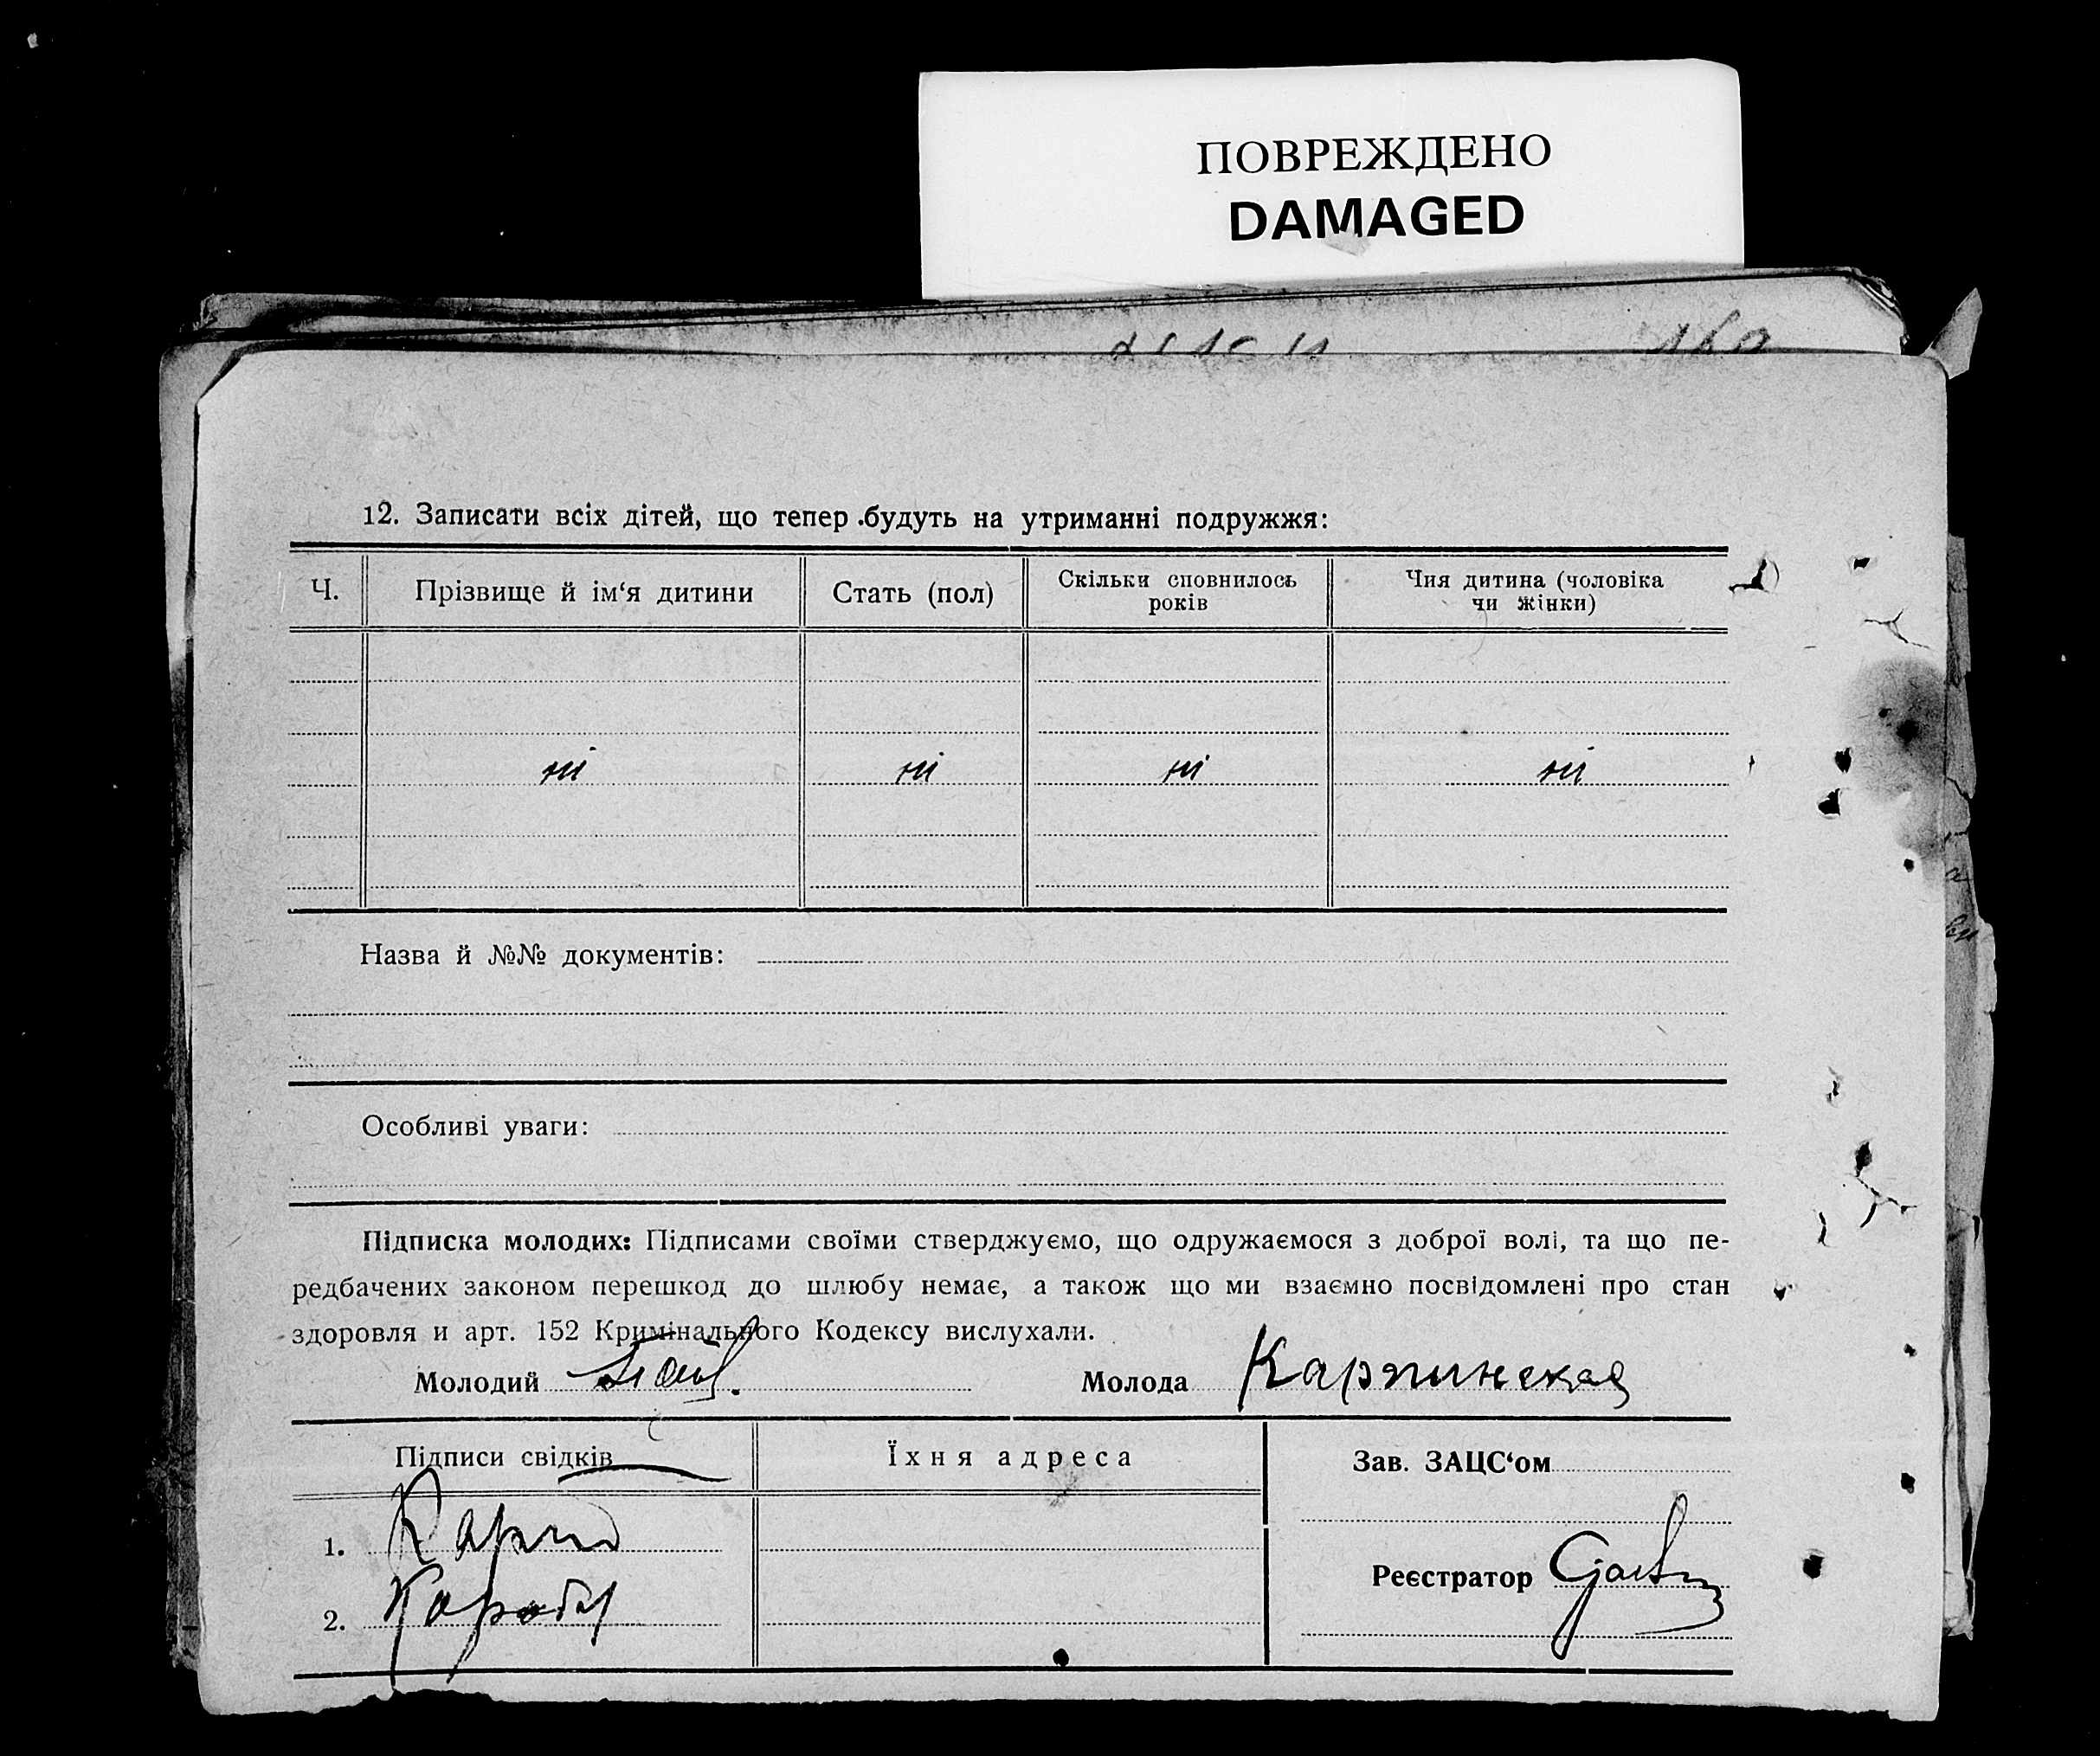 ПОВРЕЖДЕНО
DAMAGED
12. Записати всіх дітей, що тепер будуть на утриманні подружжя:
Ч. Прізвище й ім‘я дитини Стать (пол) Скільки сповнилось років Чия дитина (чоловіка чи жінки)
ні ні ні ні
Назва й №№ документів:
Особливі уваги:
Підписка молодих: Підписами своїми стверджуємо, що одружаємося з доброї волі, та що пе-
редбачених законом перешкод до шлюбу немає, а також що ми взаємно посвідомлені про стан
здоровля и арт. 152 Кримінального Кодексу вислухали.
Молодий Молода Карпинская
Підписи свідків Їхня адреса Зав. ЗАЦС‘ом
1.
Реєстратор
2.